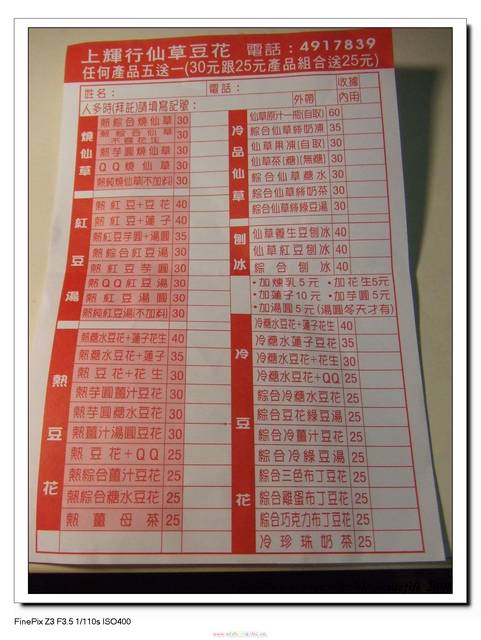 上輝行仙草豆花 電話:4917839
任何產品五送一(30元跟25元產品組合送25元)
姓名: 電話: 收據
人多時(拜託)請填寫記號: 外帶 內用
燒仙草
熱綜合燒仙草 30
30
熱芋圓燒仙草 30
QQ燒仙草 30
熱純燒仙草(不加料) 30
紅豆湯
熱紅豆+豆花 40
熱紅豆+蓮子 40
熱紅豆芋圓+湯圓 35
熱綜合紅豆湯 30
熱紅豆芋圓 30
熱QQ紅豆湯 30
熱紅豆湯圓 30
熱純紅豆湯(不加料) 30
熱豆花
熱糖水豆花+蓮子花生 40
熱糖水豆花+蓮子 35
熱豆花+花生 30
熱芋圓薑汁豆花 30
熱芋圓糖水豆花 30
熱薑汁湯圓豆花 30
熱豆花+QQ 25
熱綜合薑汁豆花 25
熱綜合糖水豆花 25
熱薑母茶 25
冷品仙草
仙草原汁一瓶(自取) 60
綜合仙草綠奶凍 35
仙草果凍(自取) 30
仙草茶(糖)(無糖) 30
綜合仙草糖水 30
綜合仙草綠奶茶 30
綜合仙草綠豆湯 30
刨冰
仙草養生豆刨冰 40
仙草紅豆刨冰 40
綜合刨冰 40
•加煉乳5元 •加花生5元
•加蓮子10元 •加芋圓5元
•加湯圓5元(湯圓冬天才有)
冷豆花
冷糖水豆花+蓮子花生 40
冷糖水蓮子豆花 35
冷糖水豆花+花生 30
冷糖水豆花+QQ 25
綜合冷糖水豆花 25
綜合豆花綠豆湯 25
綜合冷薑汁豆花 25
綜合冷綠豆湯 25
綜合三色布丁豆花 25
綜合雞蛋布丁豆花 25
綜合巧克力布丁豆花 25
冷珍珠奶茶 25
FinePix Z3 F3.5 1/110s ISO400